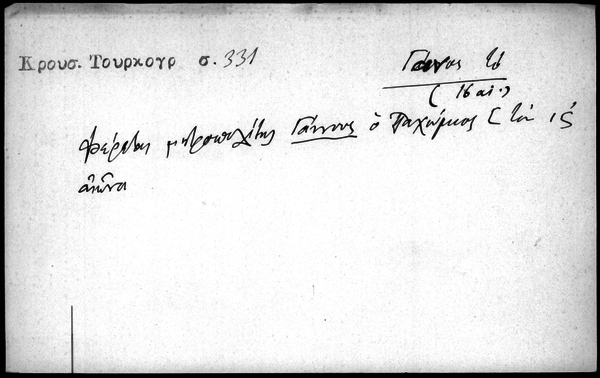 Κρουσ. Τουρκογρ σ. 331
Γάνος
(16 αι.)
Φέρεται μητροπολίτης Γάννου ὁ Παχώμιος [τοῦ ις
αἰῶνα